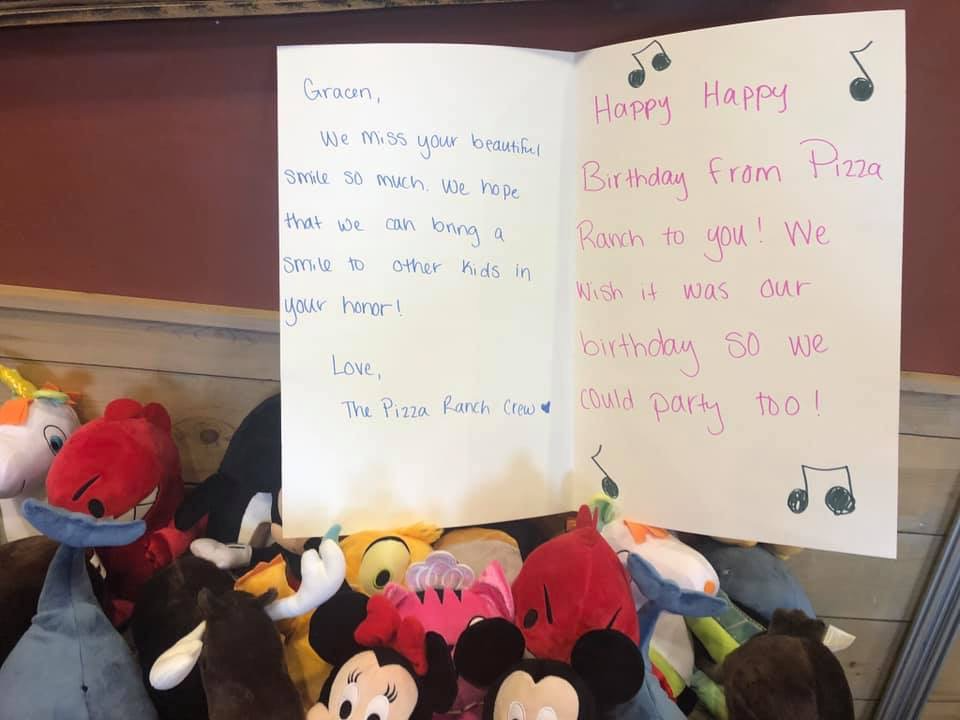 Gracen,
We miss your beautiful
smile so much. We hope
that we can bring a
smile to other kids in
your honor!
Love,
The Pizza Ranch Crew ♥
Happy Happy
Birthday from Pizza
Ranch to you! We
wish it was our
birthday so we
could party too!